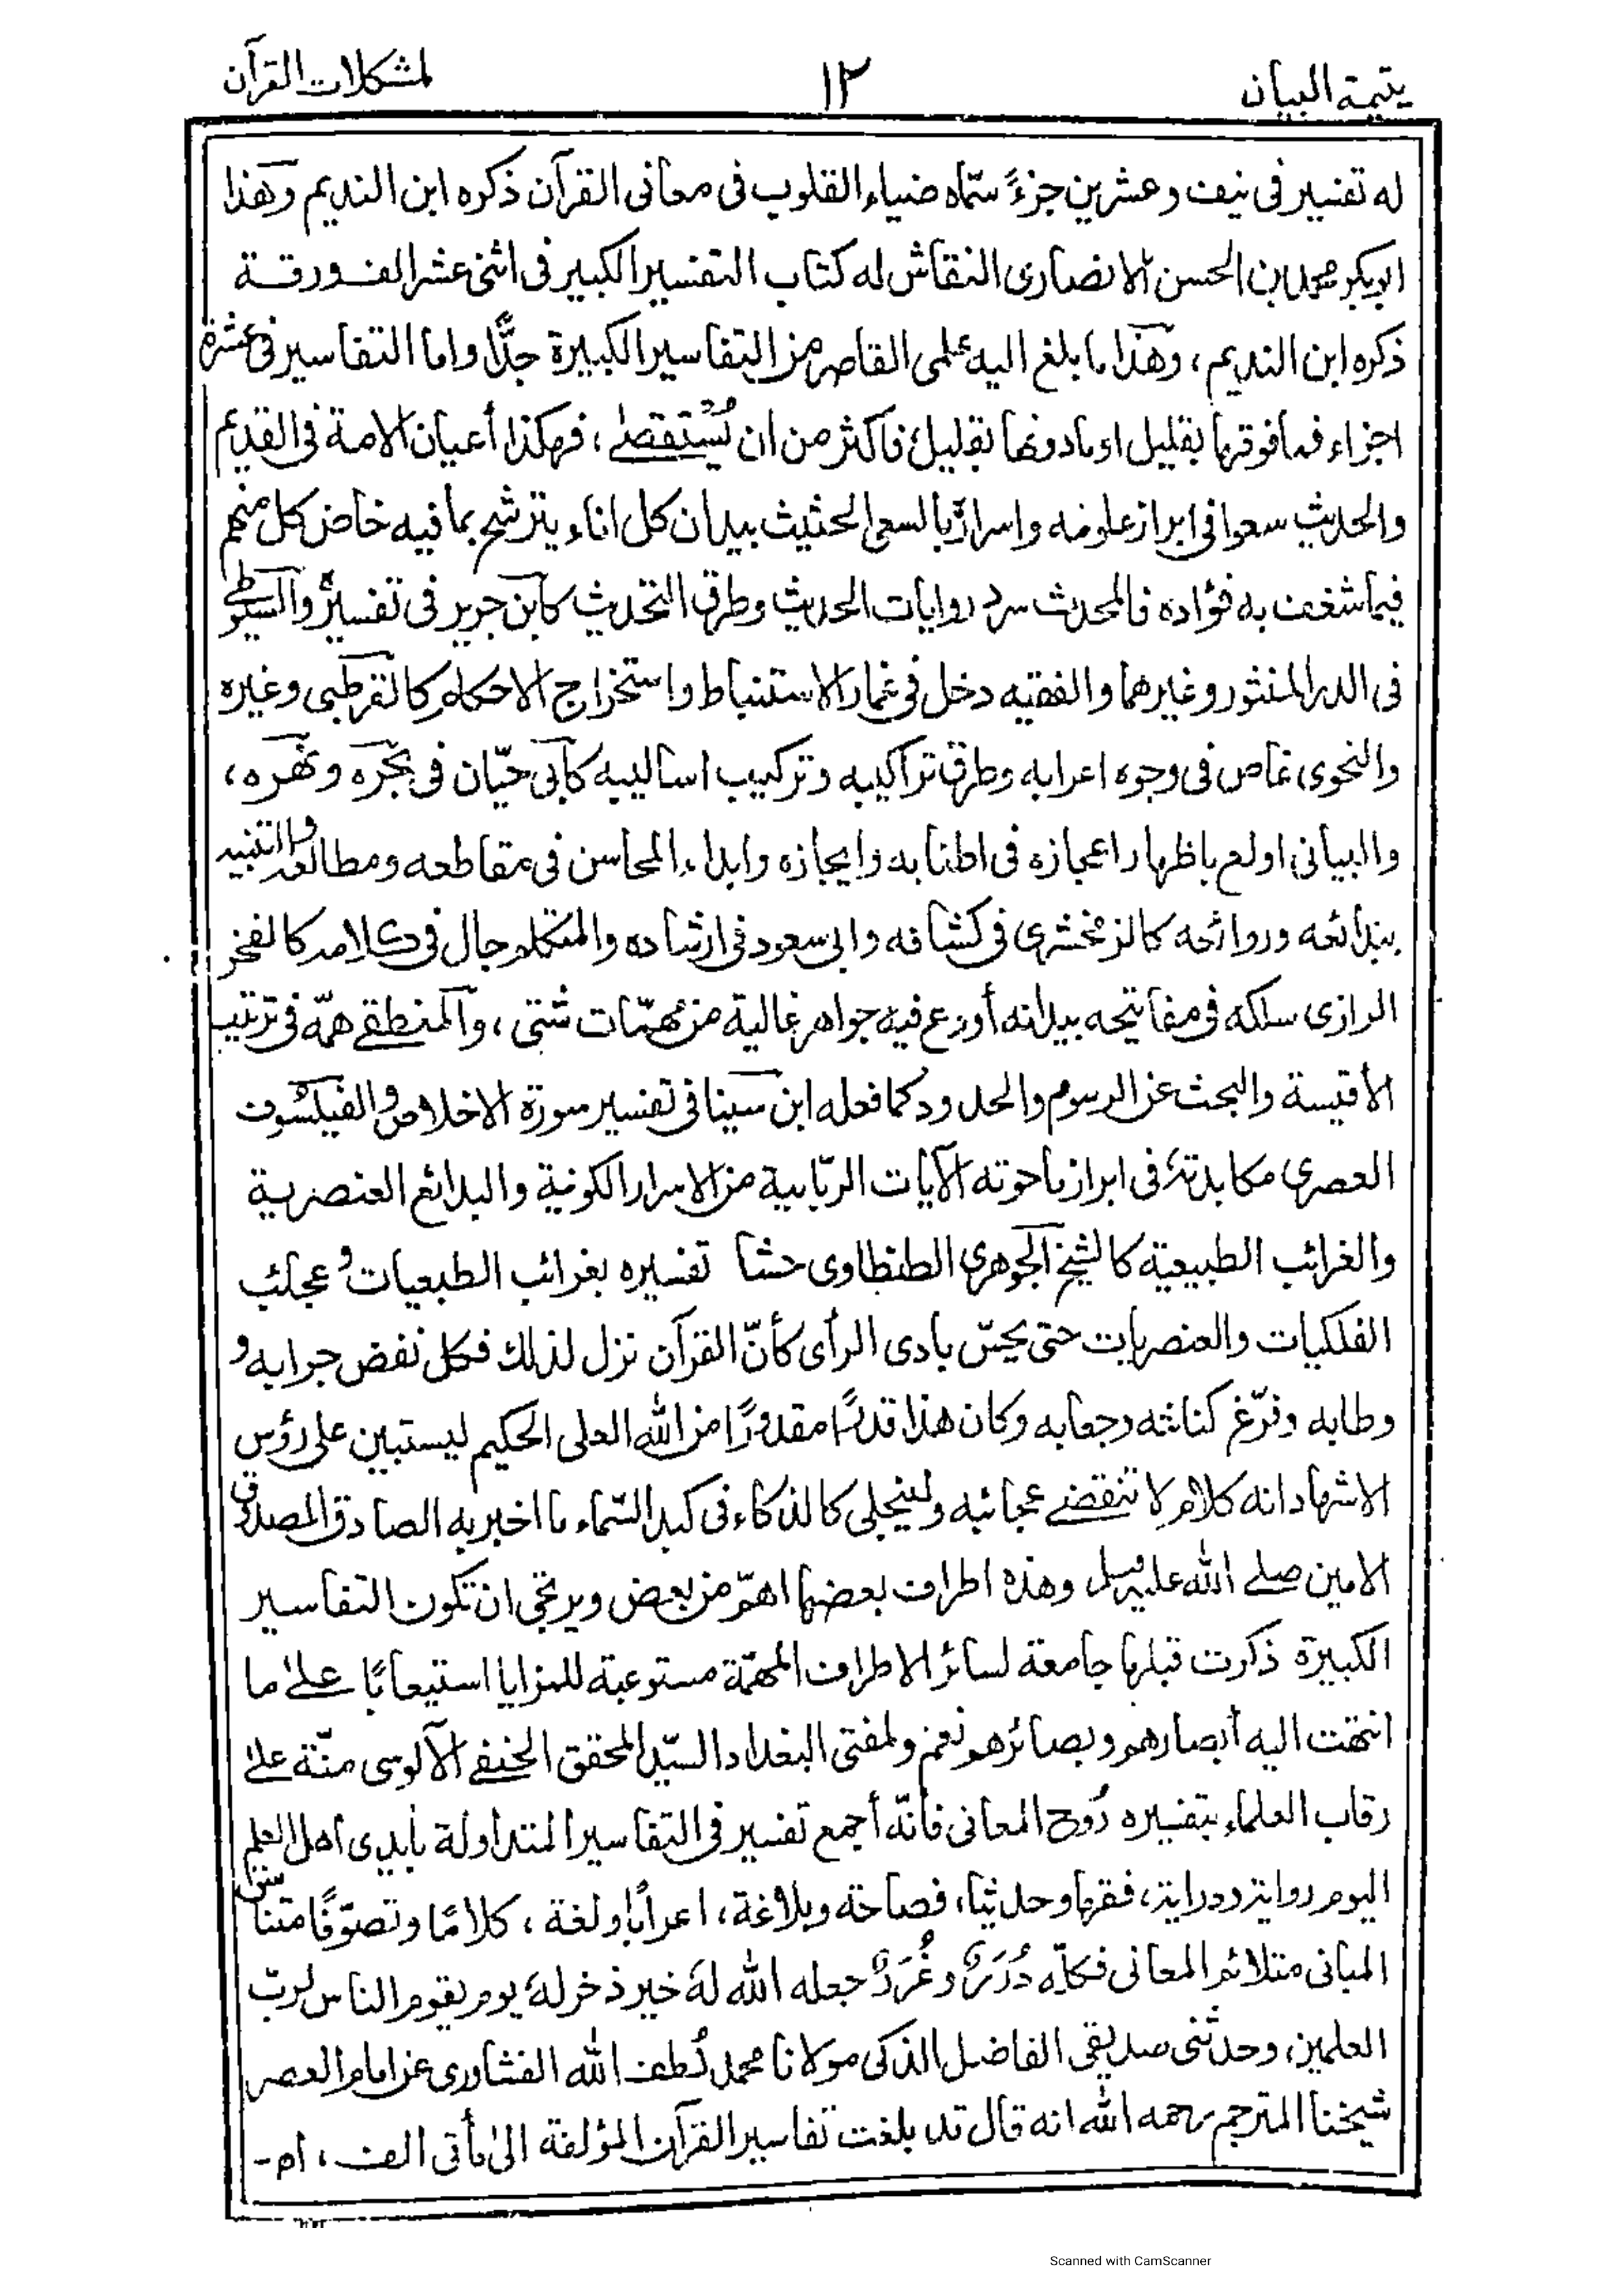 يتيمة البيان ١٢ لمشكلات القرآن
له تفسير فى نيف وعشرين جزءً سمّاه ضياء القلوب فى معانى القرآن ذكره ابن النديم وهذا
ابوبكر محمد بن الحسن الانصارى النقاش له كتاب التفسير الكبير فى اثنى عشر الف ورقة
ذكره ابن النديم، وهذا ما بلغ اليه علمى القاصر من التفاسير الكبيرة جدًّا واما التفاسير فى عشرة
اجزاء فما فوقها بقليل او ما دونها بقليل فاكثر من ان يُستقصٰے، فهكذا أعيان الامة فى القديم
والحديث سعوا فى ابراز علومه واسراره بالسعى الحثيث بيد ان كل اناء يترشح بما فيه خاض كل منهم
فيما شغف به فؤاده فالمحدث سرد روايات الحديث وطرق التحديث كابن جرير فى تفسيره والسيوطى
فى الدر المنثور وغيرهما والفقيه دخل فى غمار الاستنباط واستخراج الاحكام كالقرطبى وغيره
والنحوى غاص فى وجوه اعرابه وطرق تراكيبه وتركيب اساليبه كأبى حيّان فى بحره ونهره،
والبيانى اولع باظهار اعجازه فى اطنابه وايجازه وابداء المحاسن فى مقاطعه ومطالعه والتنبيه
ببدائعه وروائعه كالزمخشرى فى كشافه وابى سعود فى ارشاده والمتكلم جال فى كلامه كالفخر
الرازى سلكه فى مفاتيحه بيد انه أودع فيه جواهر غالية من مهمّات شتى، والمنطقے همّه فى ترتيب
الأقيسة والبحث عن الرسوم والحدود كما فعله ابن سينا فى تفسير سورة الاخلاص والفيلسوف
العصرى مكابدته فى ابراز ما حوته الآيات الربّابية من الاسرار الكونية والبدائع العنصرية
والغرائب الطبيعية كالشيخ الجوهرى الطنطاوى حشا تفسيره بغرائب الطبعيات وعجائب
الفلكيات والعنصريات حتى يحسّ بادى الرأى كأنّ القرآن نزل لذلك فكل نفض جرابه و
وطابه وفرّغ كنانته وجعابه وكان هذا قدرًا مقدورًا من الله العلى الحكيم ليستبين على رؤس
الاشهاد انه كلام لا تنقضے عجائبه ولينجلى كالذكاء فى كبد السّماء ما اخبر به الصادق المصدوق
الامين صلے الله عليه وسلم وهذه اطراف بعضها اهمّ من بعض ويرتجى ان تكون التفاسير
الكبيرة ذكرت قبلها جامعة لسائر الاطراف المهمّة مستوعبة للمزايا استيعابًا علےٰ ما
انتهت اليه أبصارهم وبصائرهم نعم ولمفتى البغداد السيّد المحقق الحنفے الآلوسى منّة علےٰ
رقاب العلماء بتفسيره رُوح المعانى فانّه أجمع تفسير فى التفاسير المتداولة بأيدى اهل العلم
اليوم رواية ودراية، فقها وحديثا، فصاحة وبلاغة، اعرابًا ولغة، كلامًا وتصوّفًا متناسق
المبانى متلائم المعانى فكلّه دُرَرٌ وغُرَرٌ جعله الله لهٗ خير ذخر لهٗ يوم يقوم الناس لربّ
العلمين، وحدثنى صديقى الفاضل الذكى مولانا محمد لُطف الله الفشاورى عن امام العصر
شيخنا المترجم رحمه الله انه قال قد بلغت تفاسير القرآن المؤلفة الىٰ مأتى الف، اه‍-
Scanned with CamScanner